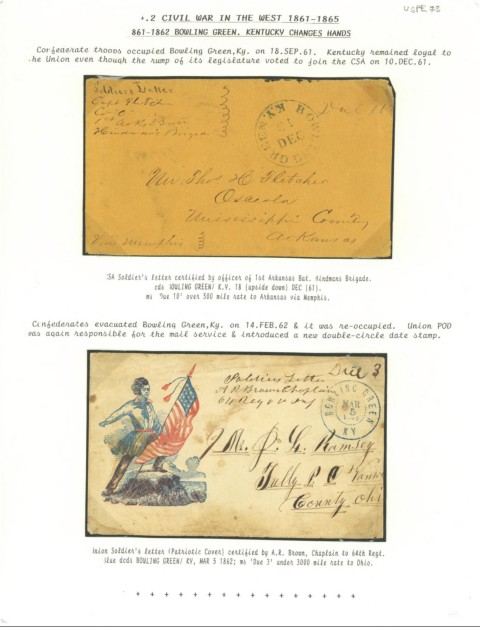 USPE 73
.2 CIVIL WAR IN THE WEST 1861-1865
861-1862 BOWLING GREEN, KENTUCKY CHANGES HANDS
Confederate troops occupied Bowling Green,Ky. on 18.SEP.61. Kentucky remained loyal to
he Union even though the rump of its legislature voted to join the CSA on 10.DEC.61.
Soldiers Letter
Capt Fletcher
Co C
1st Ark Batt
Hindman's Brigade
BOWLING GREEN. KY.
DEC
Due 10
Mr. Thos. H. Fletcher
Osceola
Mississippi County
Arkansas
Via Memphis
SA Soldier's letter certified by officer of 1st Arkansas Bat. Hindmans Brigade.
cds BOWLING GREEN/ K.Y. 18 (upside down) DEC (61).
ms 'Due 10' over 500 mile rate to Arkansas via Memphis.
Confederates evacuated Bowling Green,Ky. on 14.FEB.62 & it was re-occupied. Union POD
was again responsible for the mail service & introduced a new double-circle date stamp.
Due 3
Soldiers Letter
A R Brown Chaplain
64 Reg
BOWLING GREEN
MAR
5
KY
Mr. J. L. Ramsey
Tully P. O
County Ohio
Union Soldier's letter (Patriotic Cover) certified by A.R. Brown, Chaplain to 64th Regt.
Blue dcds BOWLING GREEN/ KY, MAR 5 1862; ms 'Due 3' under 3000 mile rate to Ohio.
+ + + + + + + + + + + + + + + +